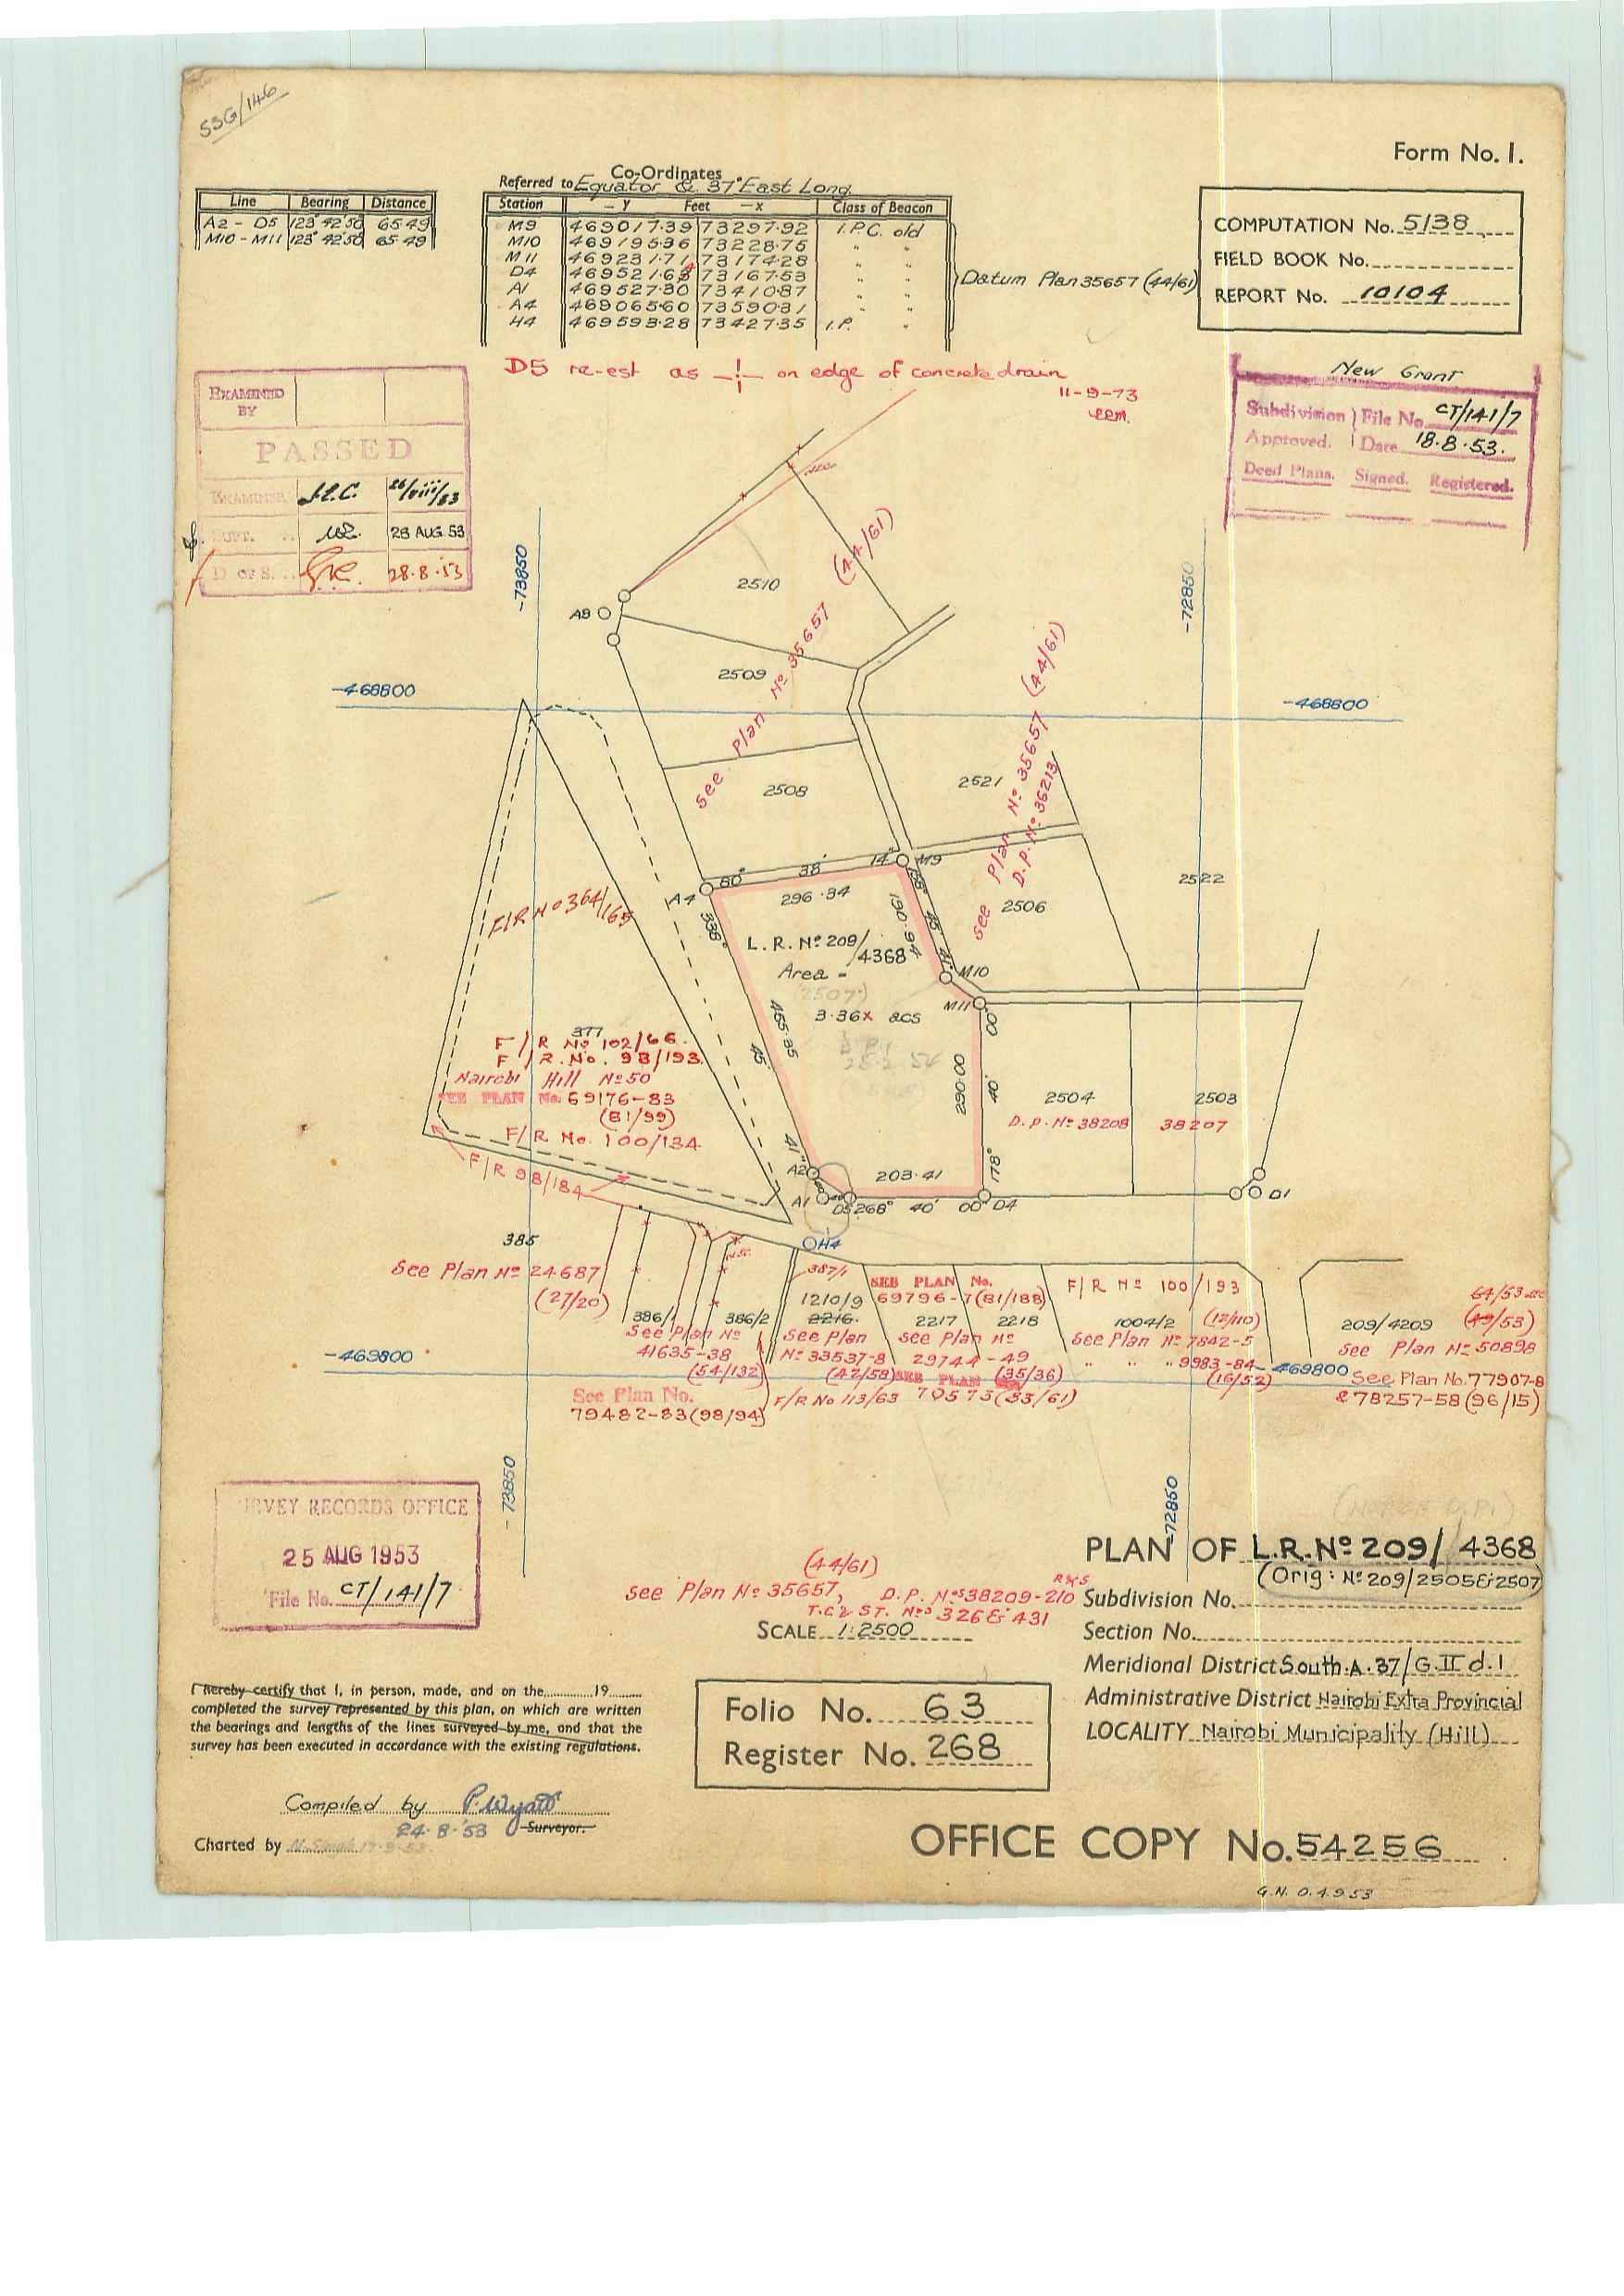 53G/146
Form No. I.
Line Bearing Distance
A2 - D5 123° 42' 50" 65·49
M10 - M11 123° 42' 50" 65·49
Co-Ordinates
Referred to Equator & 37° East Long.
Station — y Feet — x Class of Beacon
M9 469017·39 73297·92 I.P.C. old
M10 469195·36 73228·75 " "
M11 469231·71 73174·28 " "
D4 469521·63 73167·53 " "
A1 469527·30 73410·87 " "
A4 469065·60 73590·31 " "
H4 469593·28 73427·35 I.P. "
Datum Plan 35657 (44/61)
COMPUTATION No. 5138
FIELD BOOK No.
REPORT No. 10104
D5 re-est as on edge of concrete drain
11-9-73
EXAMINED
BY
PASSED
EXAMINER 26/viii/53
SUPT. 28 AUG 53
D OF S. 28·8·53
New Grant
Subdivision File No. CT/141/7
Approved. Date 18·8·53.
Deed Plans. Signed. Registered.
-73850
-72850
2510
A8
2509
See Plan No 35657 (44/61)
-468800
-468800
2508
2521
See Plan No 35657 (44/61)
D.P. No 36213
2522
2506
A4
80° 38' 14"
M9
296·34
158° 45' 41"
190·94
M10
M11
F/R No 364/165
L.R. No 209/4368
Area -
(2507)
3·36x acs
338° 45' 41"
455·85
00" 40' 178°
290·00
377
F/R No 102/66.
F/R. No. 98/193
Nairobi Hill No 50
SEE PLAN No. 69176-83
(81/99)
F/R No. 100/134
F/R 98/184
2504
D.P. No 38208
2503
38207
A2
A1
D5
203·41
268° 40' 00"
D4
D1
H4
385
See Plan No 24687
(27/20)
386/1
386/2
See Plan No
41635-38
(54/132)
387/1
1210/9
2216
See Plan
No 33537-8
(42/58)
SEE PLAN No.
69796-7(81/188)
2217
2218
See Plan No
29744-49
(35/36)
SEE PLAN
70573(83/61)
F/R No 113/63
F/R No 100/193
1004/2
(12/110)
See Plan No 7842-5
" " " 9983-84
(16/52)
64/53
209/4209
(49/53)
See Plan No 50898
See Plan No. 77907-8
& 78257-58 (96/15)
-469800
-469800
See Plan No.
79482-83(98/94)
-73850
-72850
SURVEY RECORDS OFFICE
25 AUG 1953
File No. CT/141/7
(44/61)
See Plan No 35657, D.P. Nos 38209-210
T.C & ST. Nos 326 & 431
SCALE 1:2500
PLAN OF L.R. No 209/4368
(Orig: No 209/2505 & 2507)
Subdivision No.
Section No.
Meridional District South A.37/G.II d.1
Administrative District Nairobi Extra Provincial
LOCALITY Nairobi Municipality (Hill)
I hereby certify that I, in person, made, and on the 19
completed the survey represented by this plan, on which are written
the bearings and lengths of the lines surveyed by me, and that the
survey has been executed in accordance with the existing regulations.
Folio No. 63
Register No. 268
Compiled by P. Wyatt
24·8·'53 Surveyor.
Charted by N. Singh 17·9·53
OFFICE COPY No. 54256
G.N. 0.4.9.53